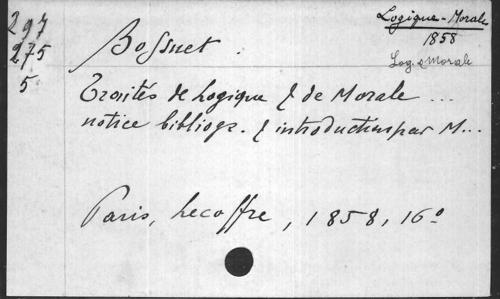 297
275
5
Logique - Morale
1858
Log. & Morale
Bossuet.
Traités de Logique & de Morale ...
notice bibliogr. & introduction par M...
Paris, Lecoffre, 1858, 16°